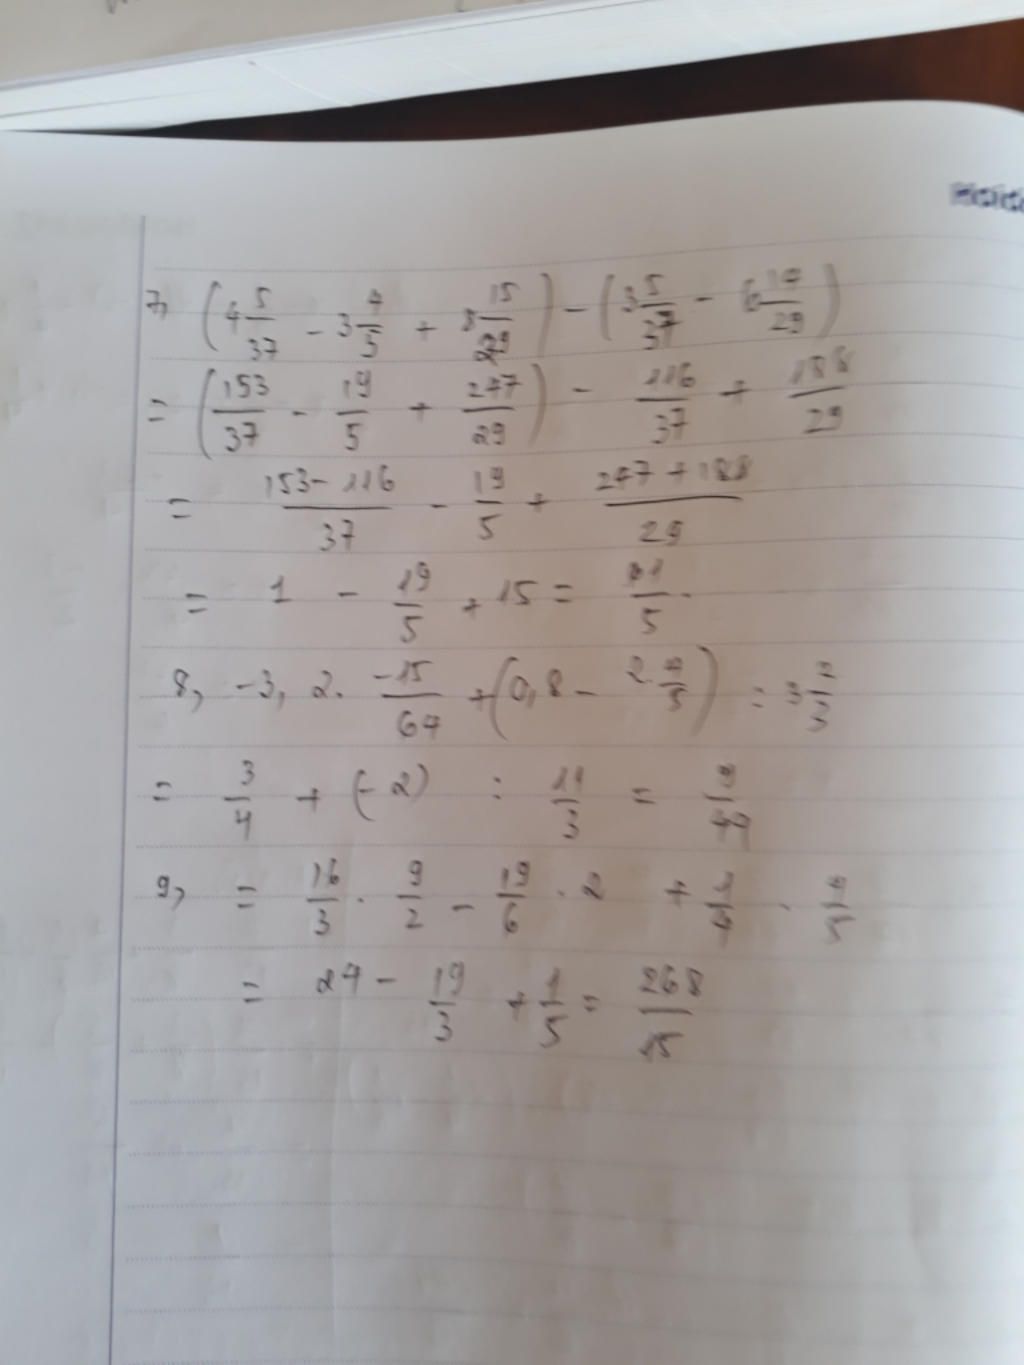 7, (4 5/37 - 3 4/5 + 8 15/29) - (3 5/37 - 6 14/29)
= (153/37 - 19/5 + 247/29) - 116/37 + 188/29
= (153 - 116)/37 - 19/5 + (247 + 188)/29
= 1 - 19/5 + 15 = 61/5.
8, -3, 2. -15/64 + (0,8 - 2. 4/5) : 3 2/3
= 3/4 + (-2) : 11/3 = 9/44
9, = 16/3 . 9/2 - 19/6 . 2 + 1/4 . 4/5
= 24 - 19/3 + 1/5 = 268/15